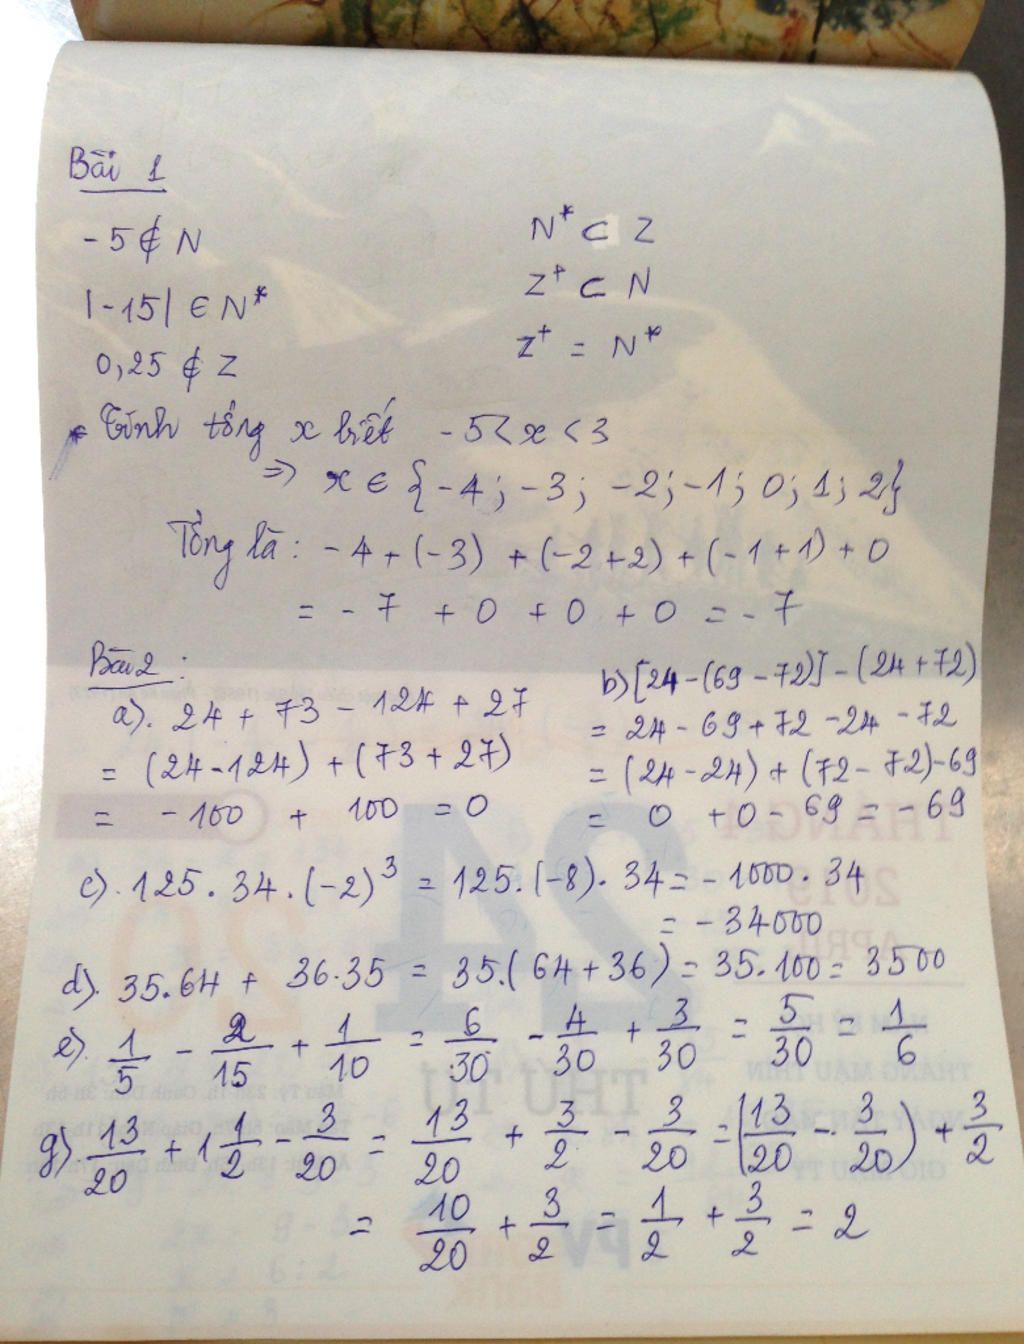 Bài 1
-5 ∉ N
|-15| ∈ N*
0,25 ∉ Z
N* ⊂ Z
Z⁺ ⊂ N
Z⁺ = N*
* Tính tổng x biết -5 < x < 3
=> x ∈ {-4; -3; -2; -1; 0; 1; 2}
Tổng là: -4 + (-3) + (-2+2) + (-1+1) + 0
= -7 + 0 + 0 + 0 = -7
Bài 2:
a). 24 + 73 - 124 + 27
= (24-124) + (73+27)
= -100 + 100 = 0
b) [24-(69-72)] - (24+72)
= 24 - 69 + 72 - 24 - 72
= (24-24) + (72-72) - 69
= 0 + 0 - 69 = -69
c). 125 . 34 . (-2)³ = 125 . (-8) . 34 = -1000 . 34
= -34000
d). 35.64 + 36.35 = 35.(64+36) = 35.100 = 3500
e). 1/5 - 2/15 + 1/10 = 6/30 - 4/30 + 3/30 = 5/30 = 1/6
g). 13/20 + 1 1/2 - 3/20 = 13/20 + 3/2 - 3/20 = (13/20 - 3/20) + 3/2
= 10/20 + 3/2 = 1/2 + 3/2 = 2